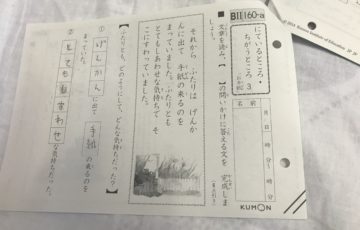 BⅡ160-a
にているところ・
ちがうところ 3
名前
月 日
時 分 〜 時 分
文章を読み、【 】の問いかけに答える文を 完成しま
しょう。
それから、ふたりは げんか
んに出て 手紙の来るのを
まっていました。ふたりとも
とてもしあわせな気持ちで そ
こにすわっていました。
【ふたりとも、どのようにして、どんな気持ちだった?】
① げんかん に出て 手紙 の来るのを
まっていた。
② とても しあわせ な気持ちだった。
KUMON